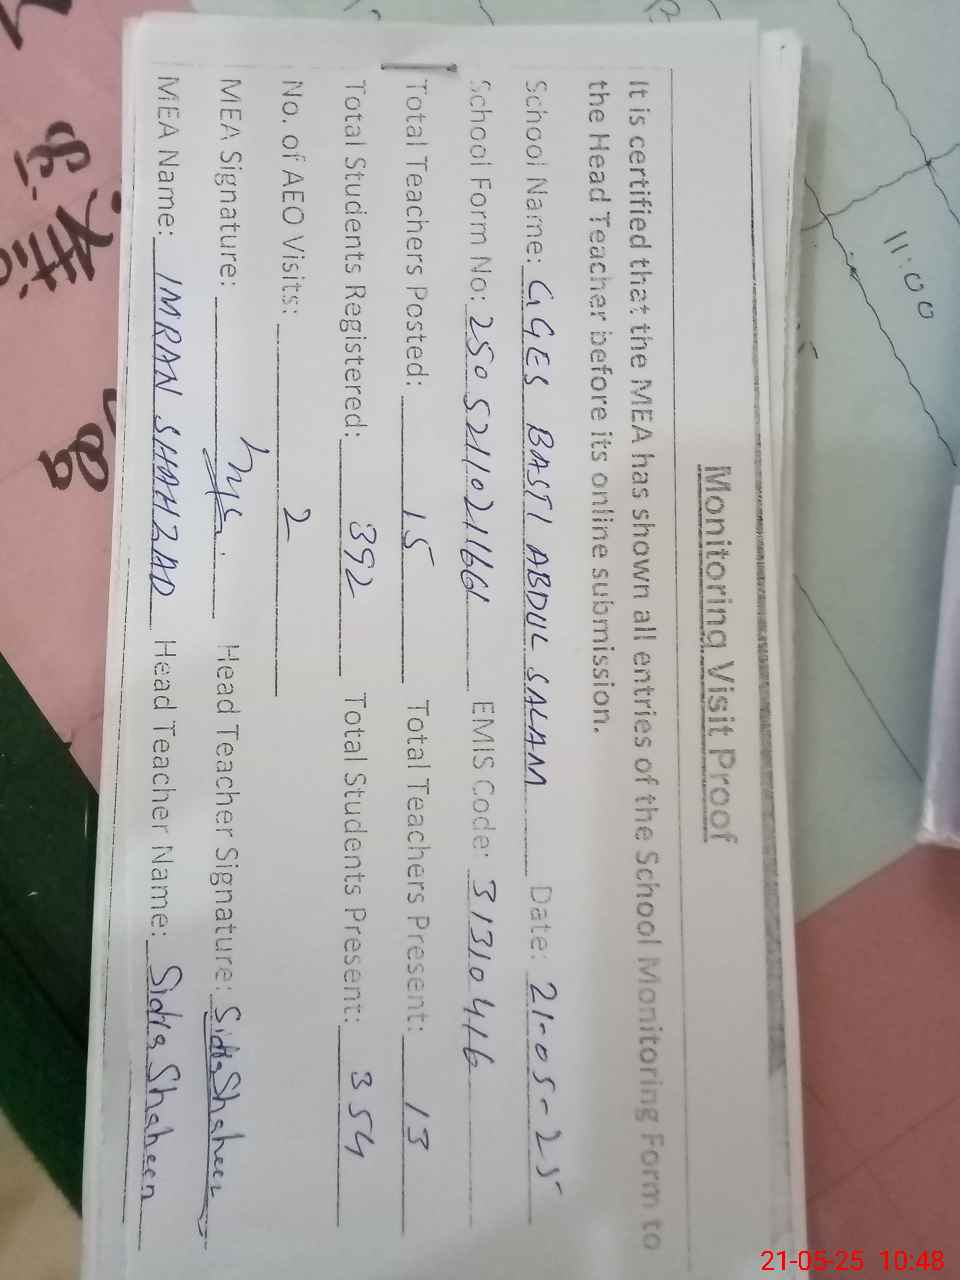 Monitoring Visit Proof
It is certified that the MEA has shown all entries of the School Monitoring Form to
the Head Teacher before its online submission.
School Name: GGES BASTI ABDUL SALAM Date: 21-05-25
School Form No: 2505211021661 EMIS Code: 31310416
Total Teachers Posted: 15 Total Teachers Present: 13
Total Students Registered: 392 Total Students Present: 354
No. of AEO Visits: 2
MEA Signature: Head Teacher Signature: Sidra Shaheen
MEA Name: IMRAN SHAHZAD Head Teacher Name: Sidra Shaheen
11:00
21-05-25 10:48